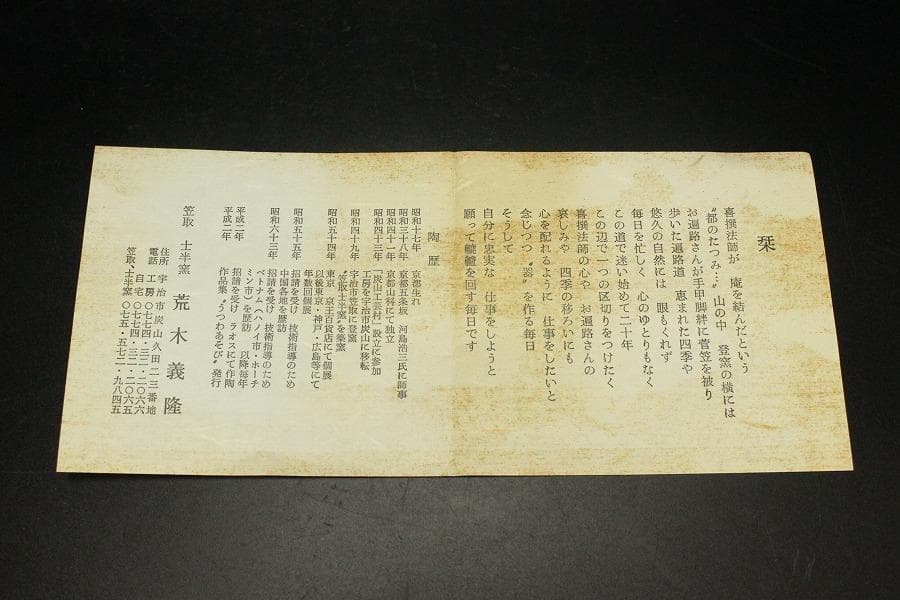 栞
喜撰法師が 庵を結んだという
〝都のたつみ…〟 山の中 登窯の横には
お遍路さんが手甲脚絆に菅笠を被り
歩いた遍路道 恵まれた四季や
悠久の自然には 眼もくれず
毎日を忙しく 心のゆとりもなく
この道で迷い始めて二十年
この辺で一つの区切りをつけたく
喜撰法師の心や お遍路さんの
哀しみや 四季の移ろいにも
心を配れるように 仕事をしたいと
念じつつ 〝器〟を作る毎日
そうして
自分に忠実な 仕事をしようと
願って轆轤を回す毎日です
陶歴
昭和十七年 京都生れ
昭和三十八年 京都五条坂 河島浩三氏に師事
昭和四十一年 京都山科にて独立
昭和四十三年 「炭山工芸村」設立に参加
工房を宇治市炭山に移転
昭和四十九年 宇治市笠取に登窯
〝笠取士半窯〟を築窯
昭和五十四年 東京 京王百貨店にて個展
以後東京・神戸・広島等にて
年数回個展
昭和五十五年 招請を受け 技術指導のため
中国各地を歴訪
昭和六十三年 招請を受け 技術指導のため
ベトナム(ハノイ市・ホーチ
ミン市)を歴訪
平成二年 招請を受け ラオスにて作陶 以降毎年
平成二年 作品集〝うつわあそび〟発行
笠取 士半窯 荒木義隆
住所 宇治市炭山久田二三番地
電話 工房 〇七七四・三二・二〇六六
自宅 〇七七四・三二・二〇六五
笠取・士半窯 〇七五・五七二・九八四五